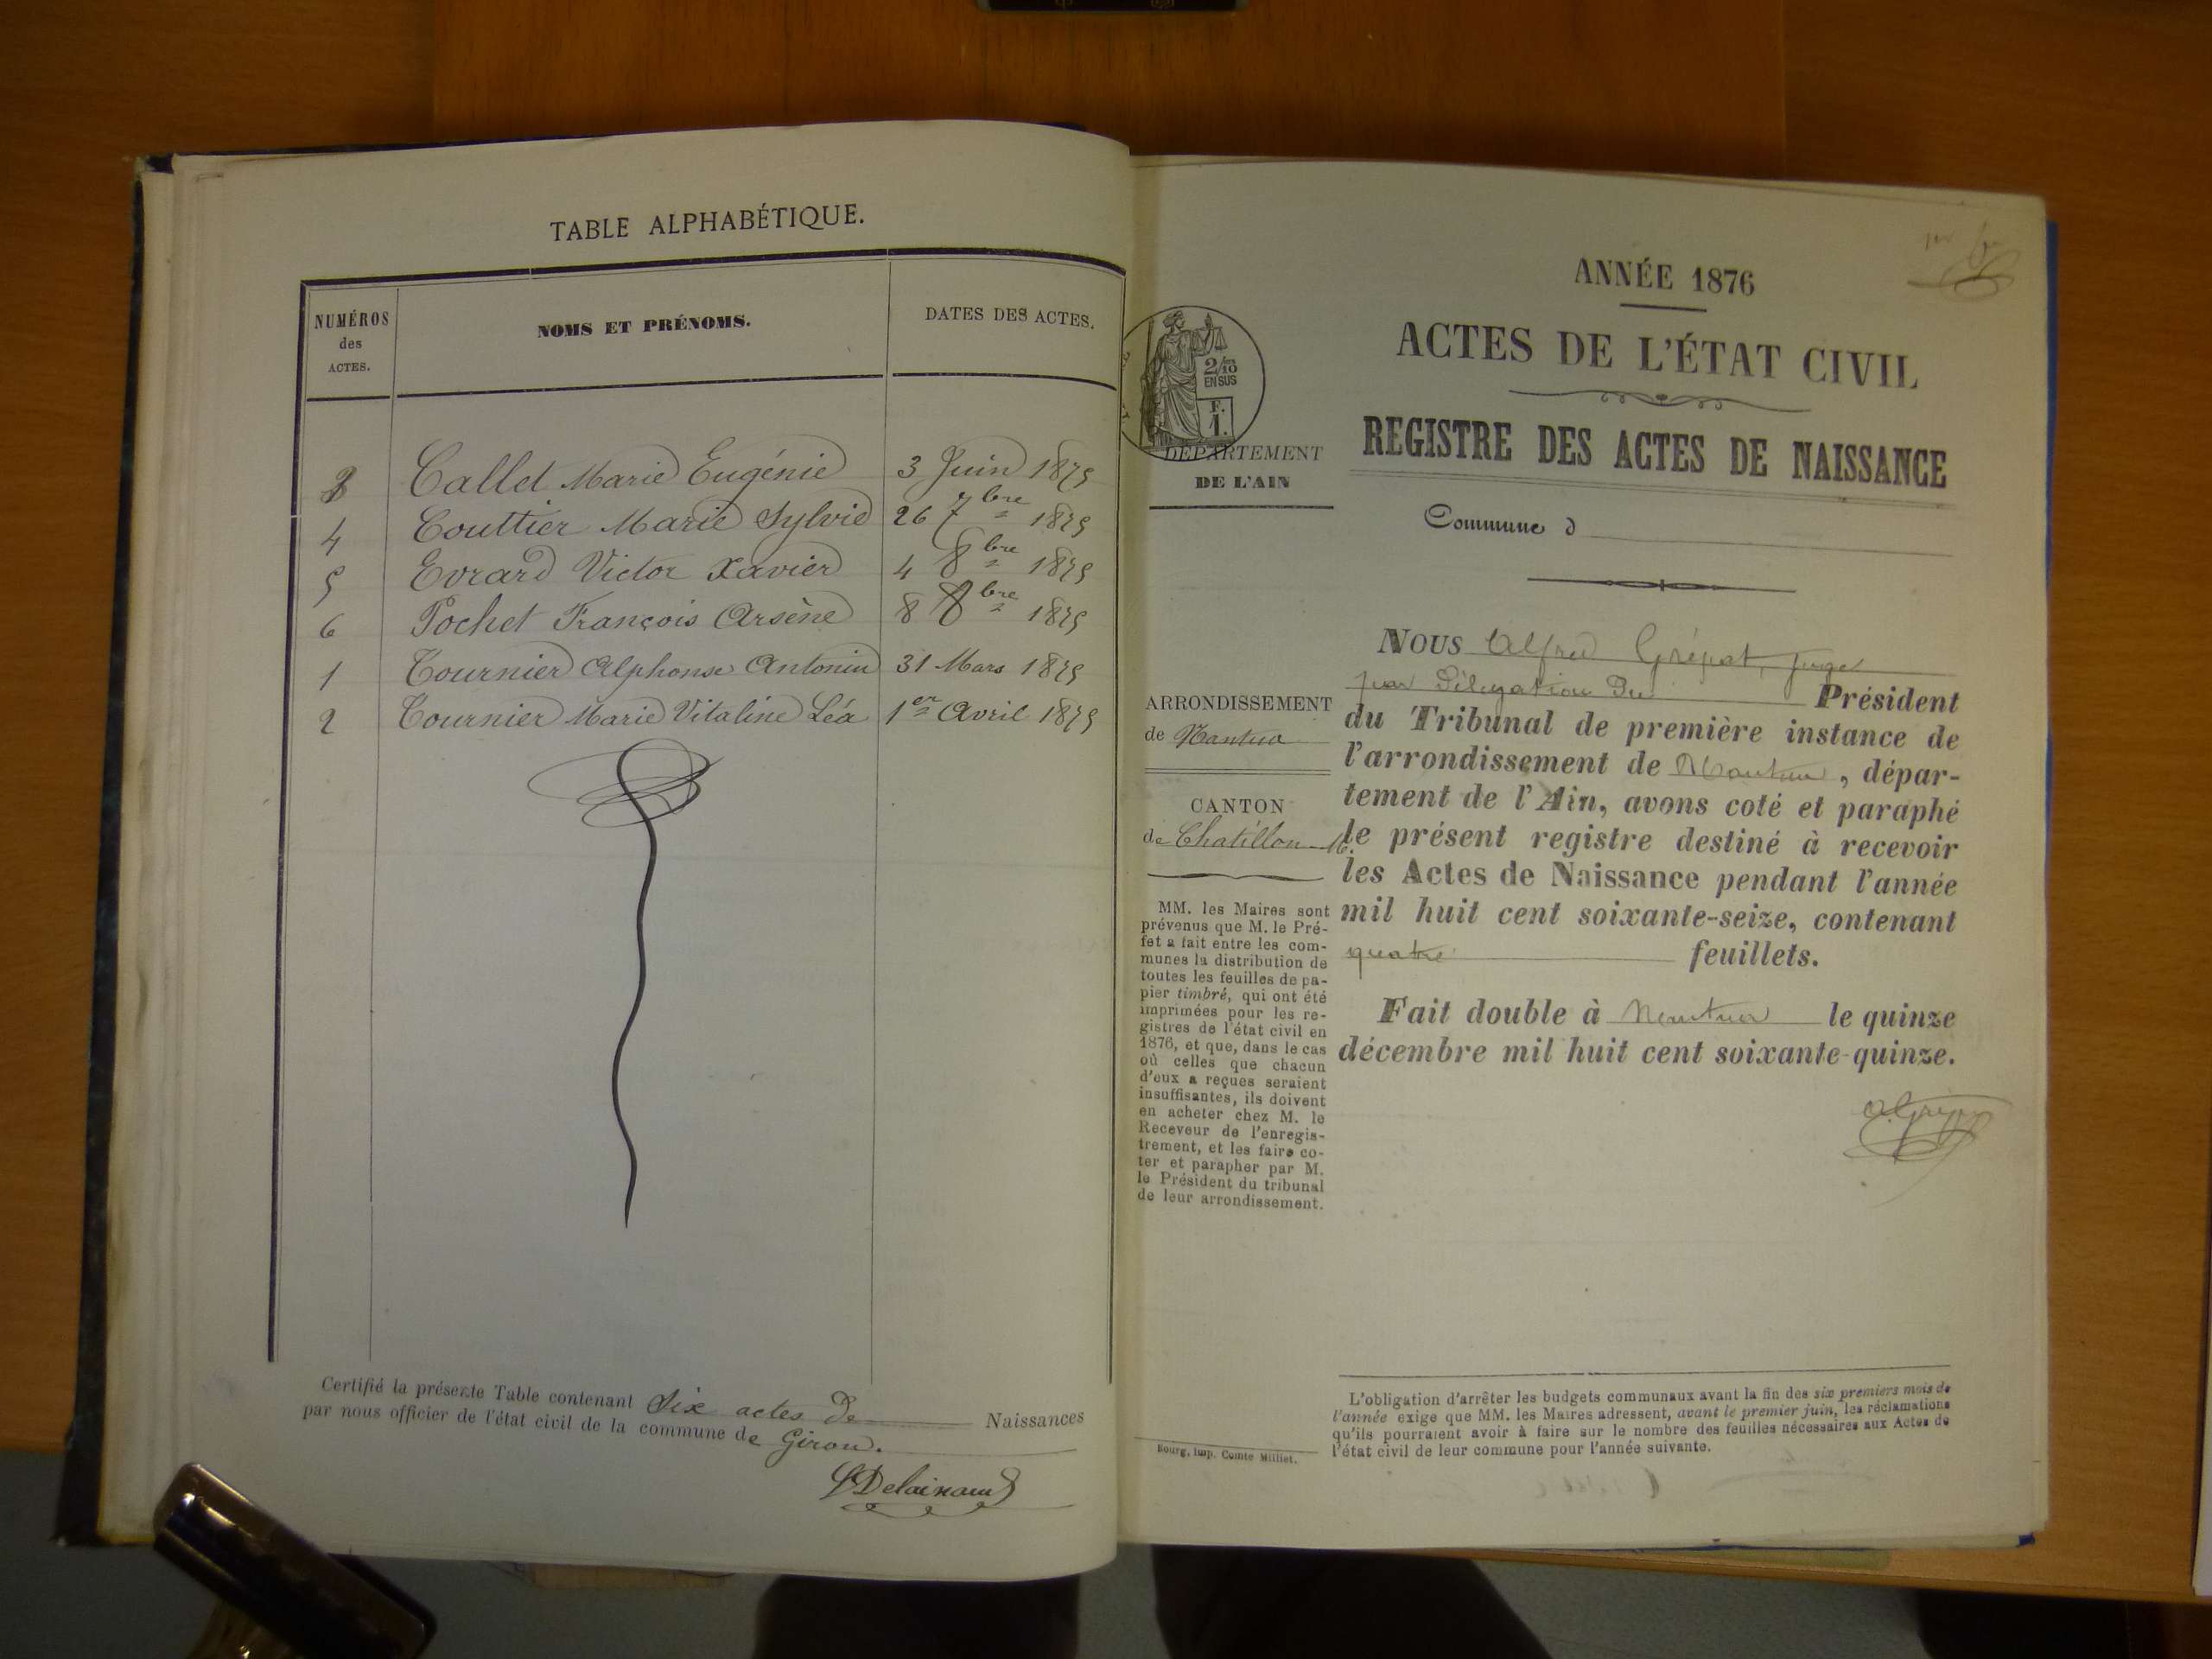 TABLE ALPHABÉTIQUE.
NUMÉROS des ACTES.
NOMS ET PRÉNOMS.
DATES DES ACTES.
3 Callet Marie Eugénie 3 Juin 1875
4 Couttier Marie Sylvie 26 7bre 1875
5 Evrard Victor Xavier 4 8bre 1875
6 Pochet François Arsène 8 8bre 1875
1 Tournier Alphonse Antonin 31 Mars 1875
2 Tournier Marie Vitaline Léa 1er Avril 1875
Certifié la présente Table contenant Six actes de Naissances
par nous officier de l'état civil de la commune de Giron.
ANNÉE 1876
ACTES DE L'ÉTAT CIVIL
REGISTRE DES ACTES DE NAISSANCE
2/10
EN SUS
F.
1.
DÉPARTEMENT
DE L'AIN
Commune d
ARRONDISSEMENT
de Nantua
CANTON
de Chatillon-M.
MM. les Maires sont
prévenus que M. le Pré-
fet a fait entre les com-
munes la distribution de
toutes les feuilles de pa-
pier timbré, qui ont été
imprimées pour les re-
gistres de l'état civil en
1876, et que, dans le cas
où celles que chacun
d'eux a reçues seraient
insuffisantes, ils doivent
en acheter chez M. le
Receveur de l'enregis-
trement, et les faire co-
ter et parapher par M.
le Président du tribunal
de leur arrondissement.
Bourg, imp. Comte Milliet.
NOUS Alfred Grépat, juge
par Délégation Du Président
du Tribunal de première instance de
l'arrondissement de Nantua, dépar-
tement de l'Ain, avons coté et paraphé
le présent registre destiné à recevoir
les Actes de Naissance pendant l'année
mil huit cent soixante-seize, contenant
quatre feuillets.
Fait double à Nantua le quinze
décembre mil huit cent soixante-quinze.
L'obligation d'arrêter les budgets communaux avant la fin des six premiers mois de
l'année exige que MM. les Maires adressent, avant le premier juin, les réclamations
qu'ils pourraient avoir à faire sur le nombre des feuilles nécessaires aux Actes de
l'état civil de leur commune pour l'année suivante.